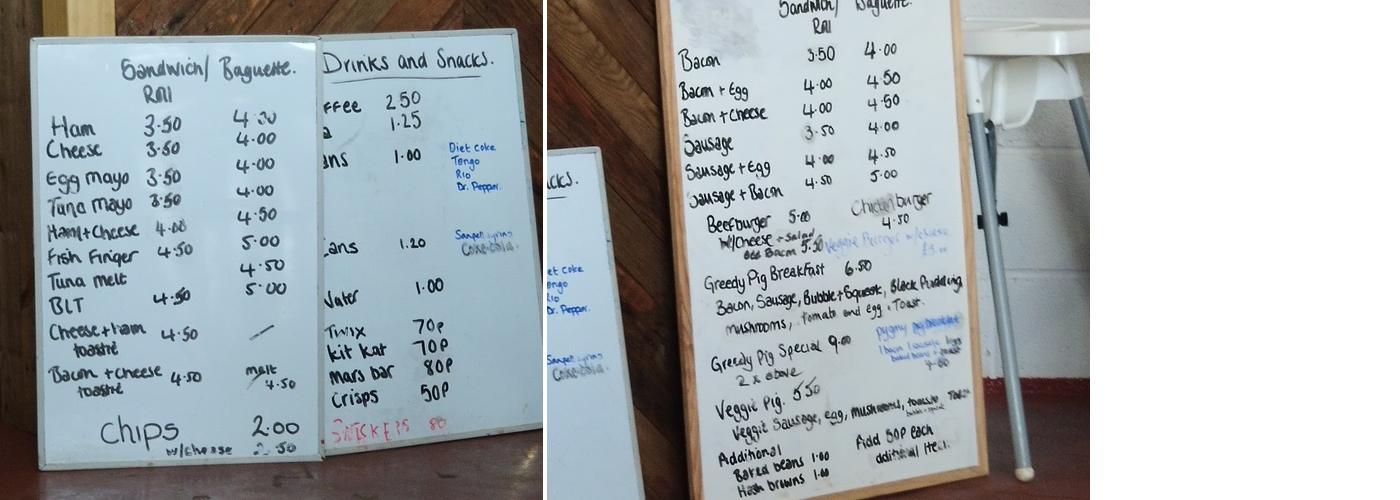 Sandwich/ Baguette.
Roll
Ham 3.50 4.00
Cheese 3.50 4.00
Egg Mayo 3.50 4.00
Tuna Mayo 3.50 4.00
Ham+Cheese 4.00 4.50
Fish Finger 4.50 5.00
Tuna melt 4.50
BLT 4.50 5.00
Cheese+ham 4.50
toastie
Bacon +cheese 4.50 melt
toastie 4.50
Chips 2.00
w/cheese 2.50
Drinks and Snacks.
ffee 2.50
a 1.25
ans 1.00 Diet Coke
Tango
Rio
Dr. Pepper.
ans 1.20
Coke-Cola.
Water 1.00
Twix 70p
kit kat 70p
mars bar 80p
Crisps 50p
SNICKERS 80
cks.
et Coke
ango
Rio
Dr. Pepper.
Coke-Cola.
Sandwich/ Baguette.
Roll
Bacon 3.50 4.00
Bacon + Egg 4.00 4.50
Bacon + Cheese 4.00 4.50
Sausage 3.50 4.00
Sausage + Egg 4.00 4.50
Sausage + Bacon 4.50 5.00
Beefburger 5.00 Chicken burger
w/Cheese + Salad 4.50
add Bacon 5.50 Veggie Burger w/cheese
£5.00
Greedy Pig Breakfast 6.50
Bacon, Sausage, Bubble+Squeek, Black Pudding,
mushrooms, tomato and egg. Toast.
Greedy Pig Special 9.00
2 x above
pygmy pig breakfast
1 bacon 1 sausage 1 egg
baked beans + toast
4.00
Veggie Pig. 5.50
Veggie Sausage, egg, mushrooms, tomato, Toast
bubble + squeek
Additional
Baked beans 1.00
Hash browns 1.00
Add 50p each
additional Item.